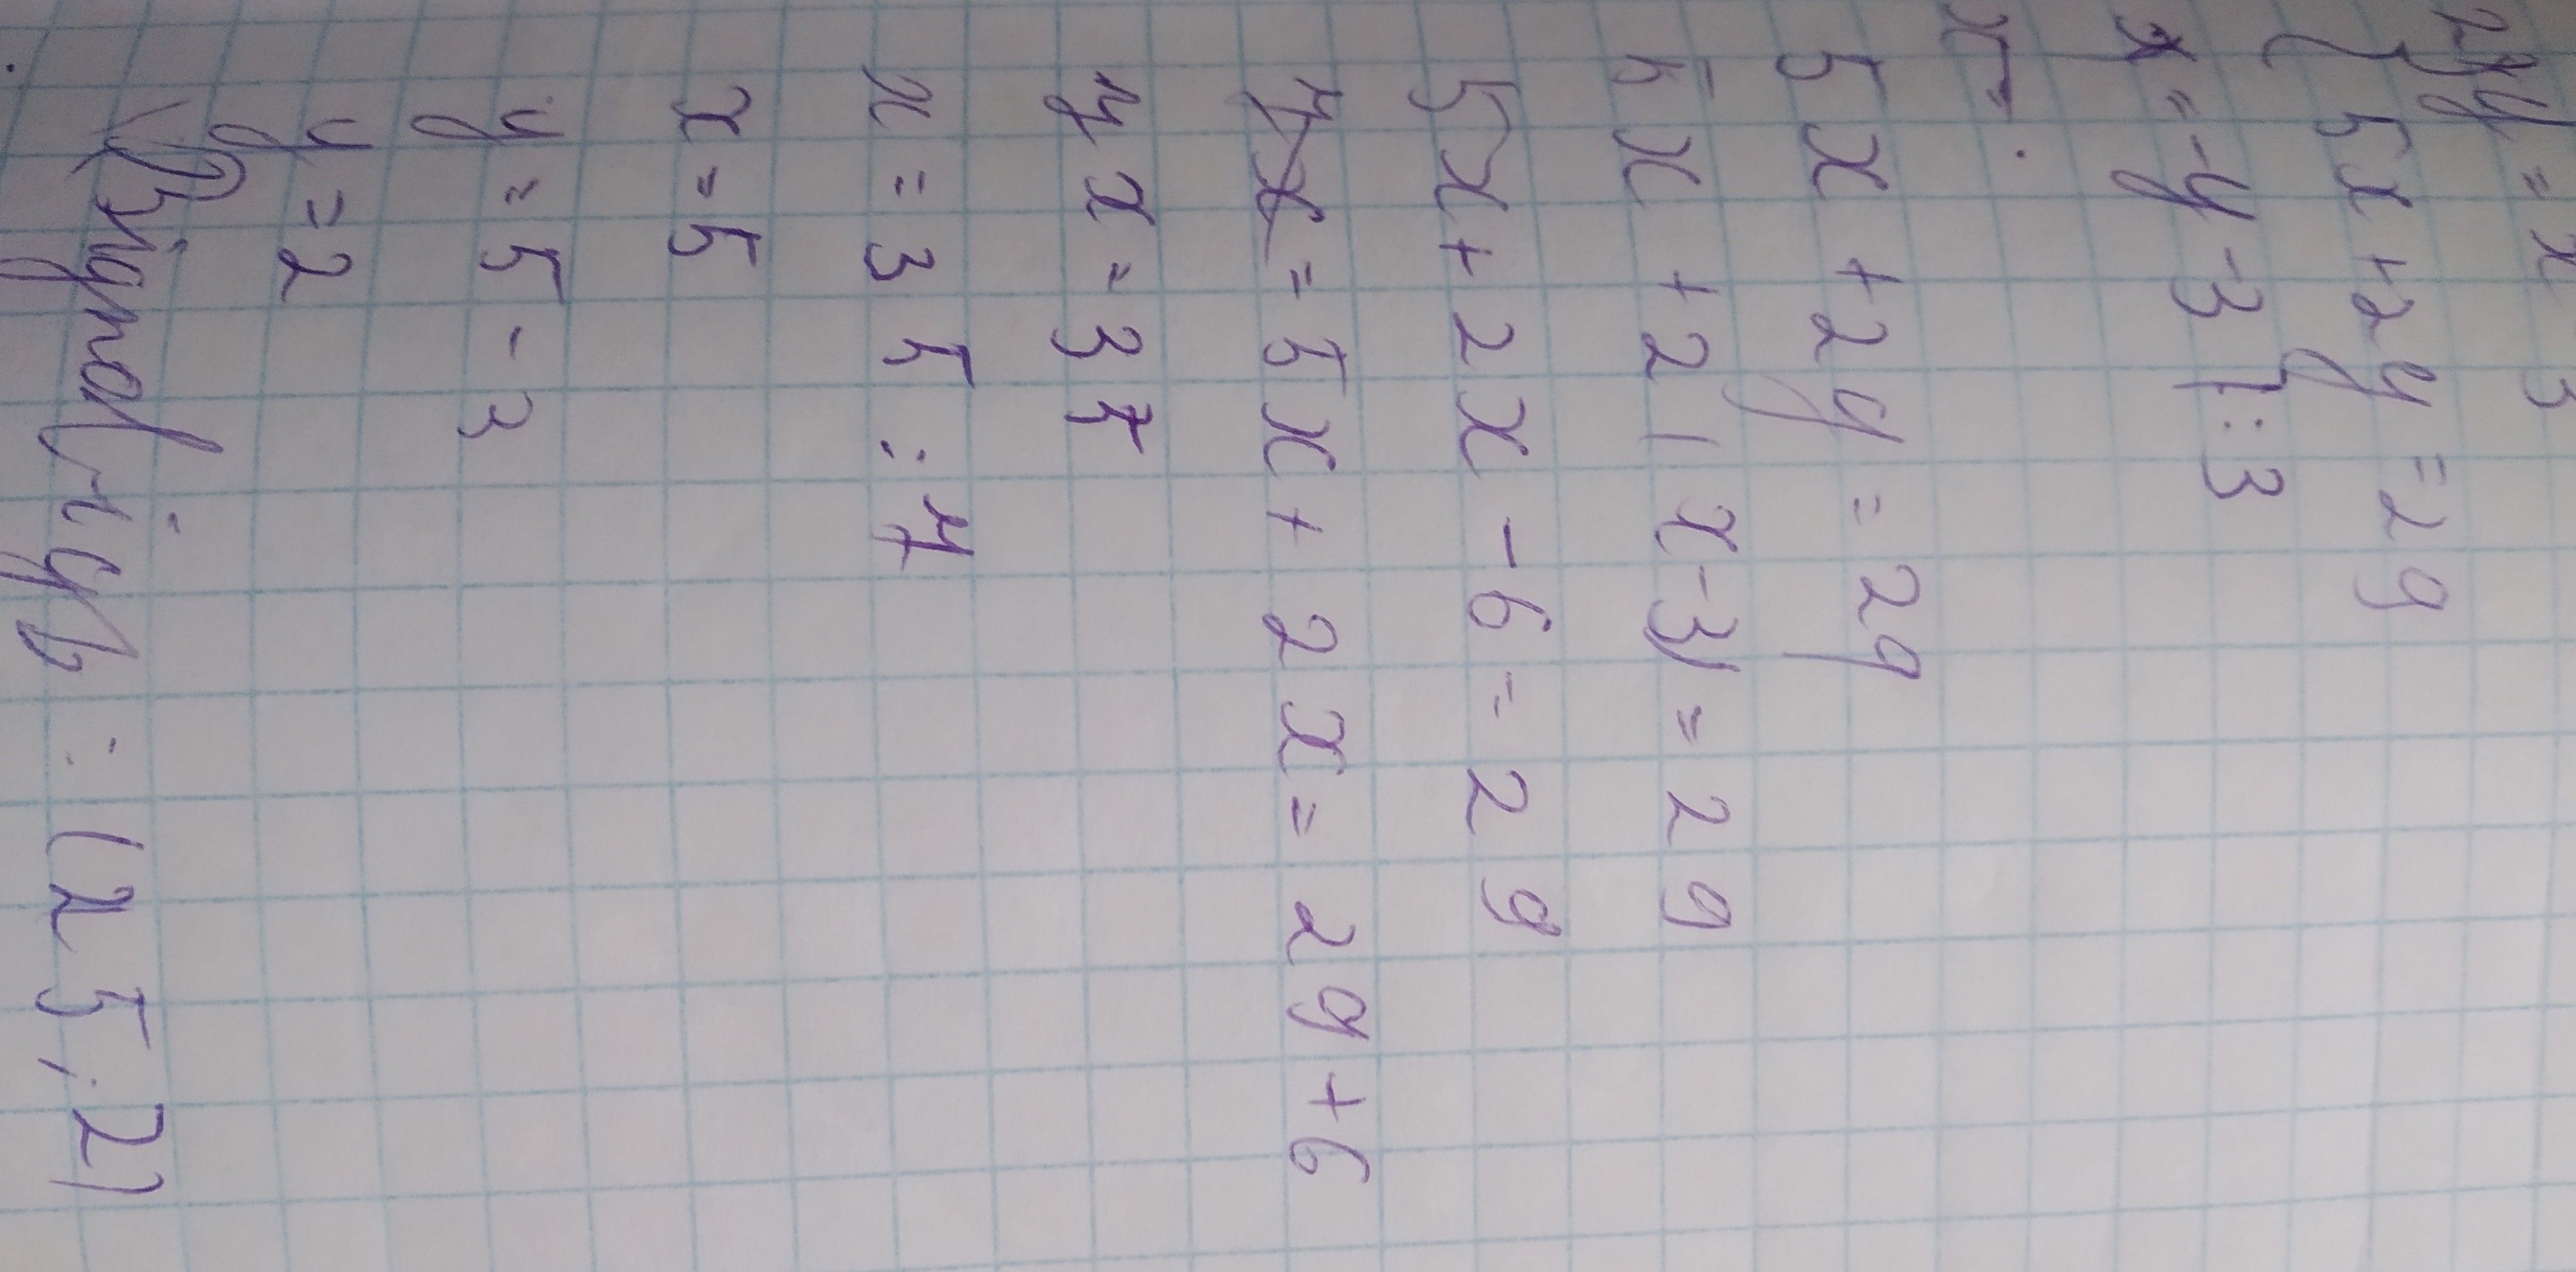 y = x - 3
5x + 2y = 29
x = -y - 3 | : 3
5x + 2y = 29
5x + 2(x - 3) = 29
5x + 2x - 6 = 29
7x = 5x + 2x = 29 + 6
7x = 35
x = 35 : 7
x = 5
y = 5 - 3
y = 2
Відповідь : (25 ; 2)